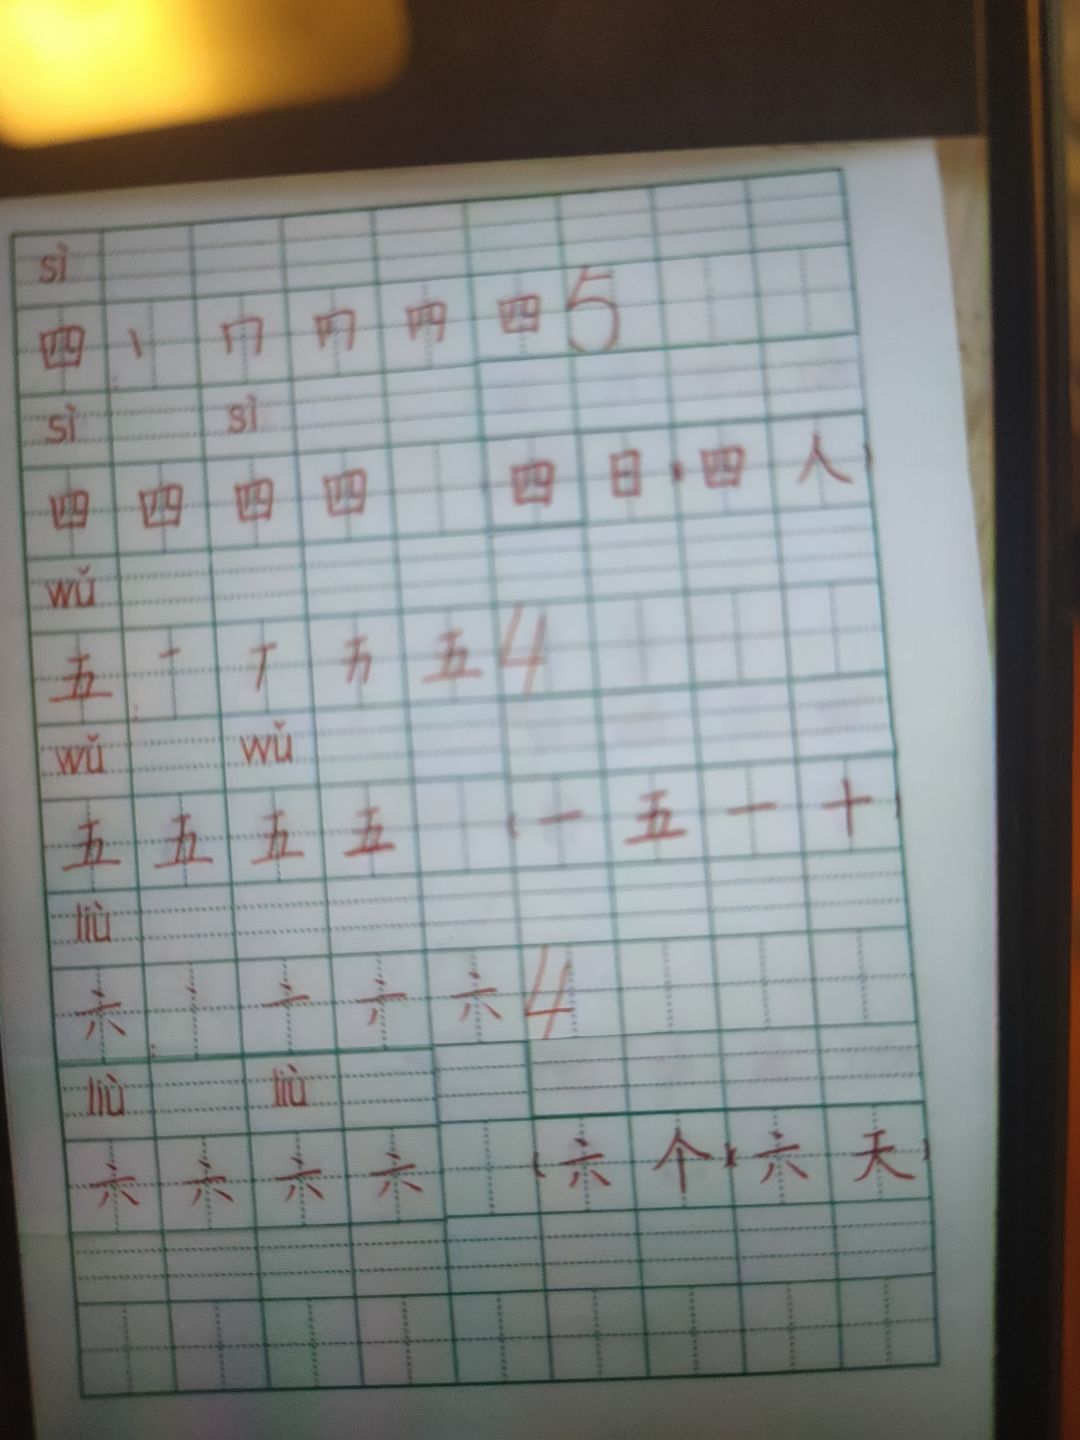 sì
四 丶 冂 𠘨 四 四 5
sì sì
四 四 四 四 四 日 四 人
wǔ
五 一 丅 五 4
wǔ wǔ
五 五 五 五 一 五 一 十
liù
六 丶 亠 六 4
liù liù
六 六 六 六 六 个 六 天